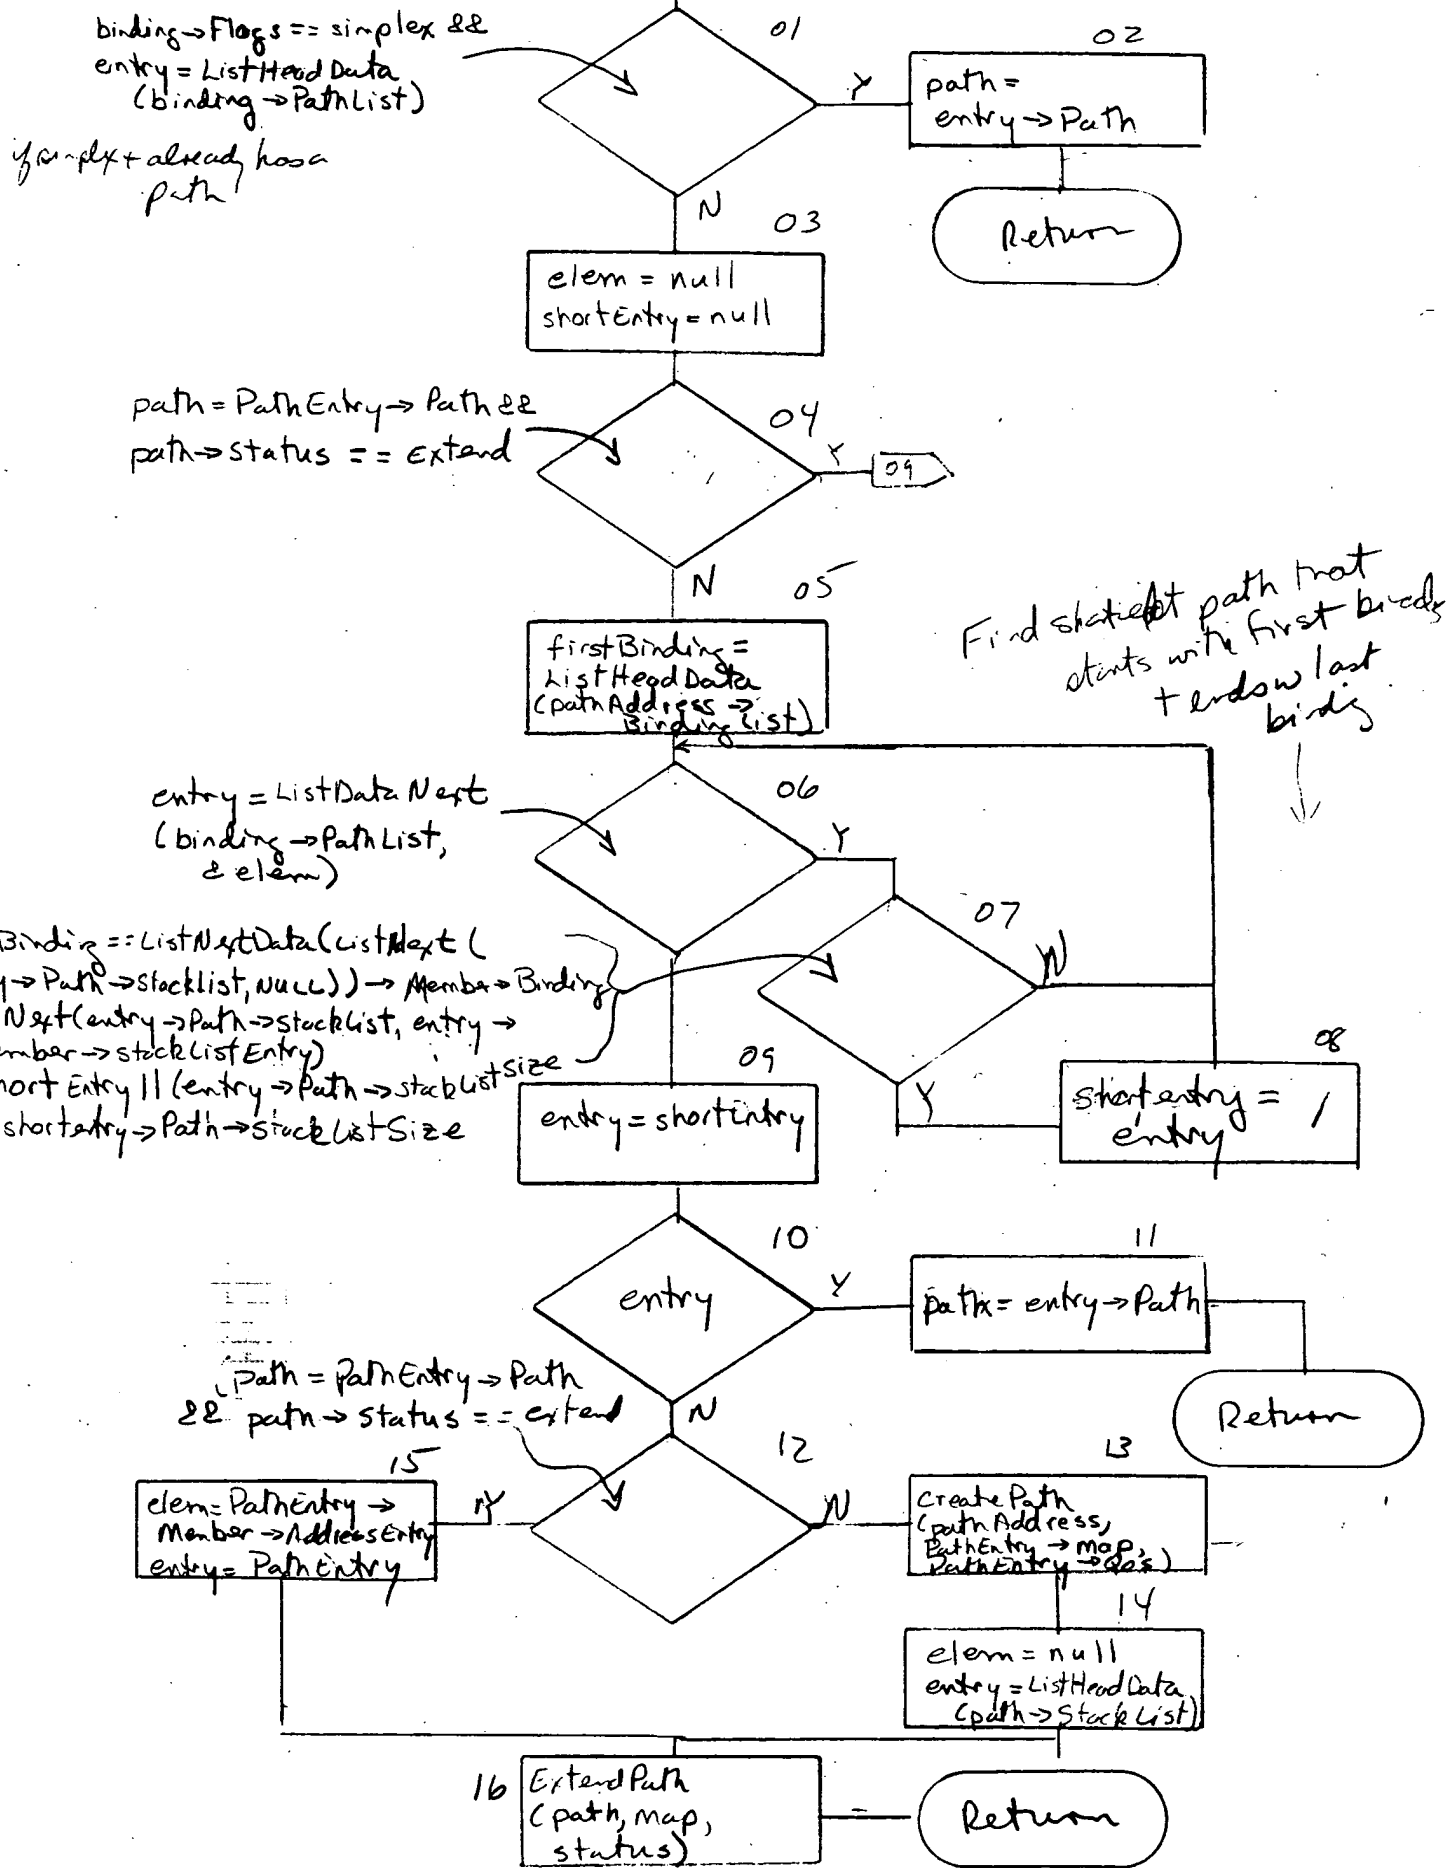 binding→Flags == simplex &&
entry = ListHeadData
(binding→PathList)
if simplex + already has a
path
01
Y
N
02
path =
entry→Path
Return
03
elem = null
shortEntry = null
path = PathEntry→Path &&
path→Status == Extend
04
Y
09
N
05
firstBinding =
ListHeadData
(pathAddress→
BindingList)
Find shortest path that
starts with first binding
+ ends w last
binding
entry = ListDataNext
(binding→PathList,
&elem)
06
Y
07
N
Y
Binding == ListNextData(ListNext(
y→Path→StackList, NULL))→Member→Binding
Next(entry→Path→StackList, entry→
mber→stackListEntry)
hort Entry || (entry→Path→stackListSize
shortentry→Path→StackListSize
08
shortentry =
entry
09
entry = shortEntry
10
entry
Y
N
11
path = entry→Path
Return
path = pathEntry→Path
&& path→status == extend
12
Y
N
15
elem = PathEntry→
Member→AddressEntry
entry = PathEntry
13
CreatePath
(pathAddress,
PathEntry→map,
PathEntry→Qos)
14
elem = null
entry = ListHeadData
(path→StackList)
16
ExtendPath
(path, map,
status)
Return